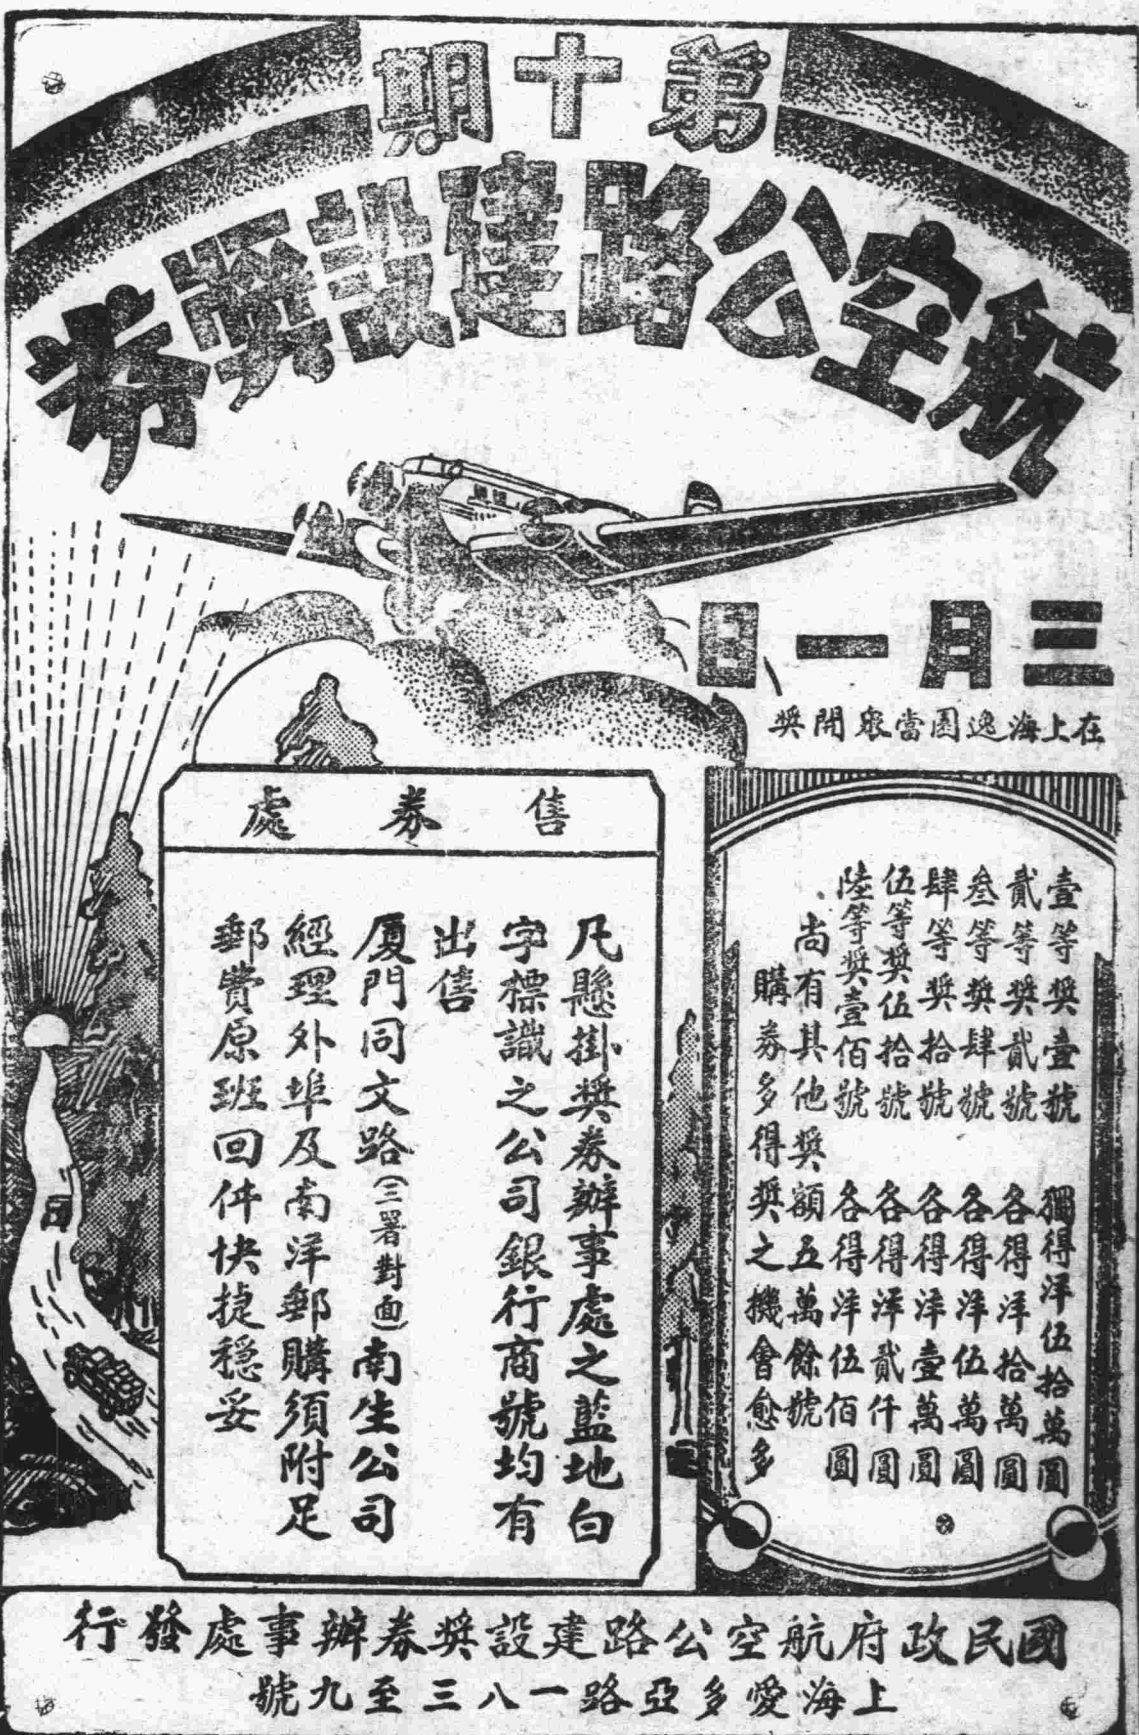 第十期
航空公路建設獎券
三月一日
在上海逸園當眾開獎
壹等獎壹號　獨得洋伍拾萬圓
貳等獎貳號　各得洋拾萬圓
叁等獎肆號　各得洋伍萬圓
肆等獎拾號　各得洋壹萬圓
伍等獎伍拾號　各得洋貳仟圓
陸等獎壹佰號　各得洋伍佰圓
尚有其他獎額五萬餘號
購券多得獎之機會愈多
售券處
凡懸掛獎券辦事處之藍地白
字標識之公司銀行商號均有
出售
厦門同文路(三署對面)南生公司
經理外埠及南洋郵購須附足
郵費原班回件快捷穩妥
國民政府航空公路建設獎券辦事處發行
上海愛多亞路一八三至九號